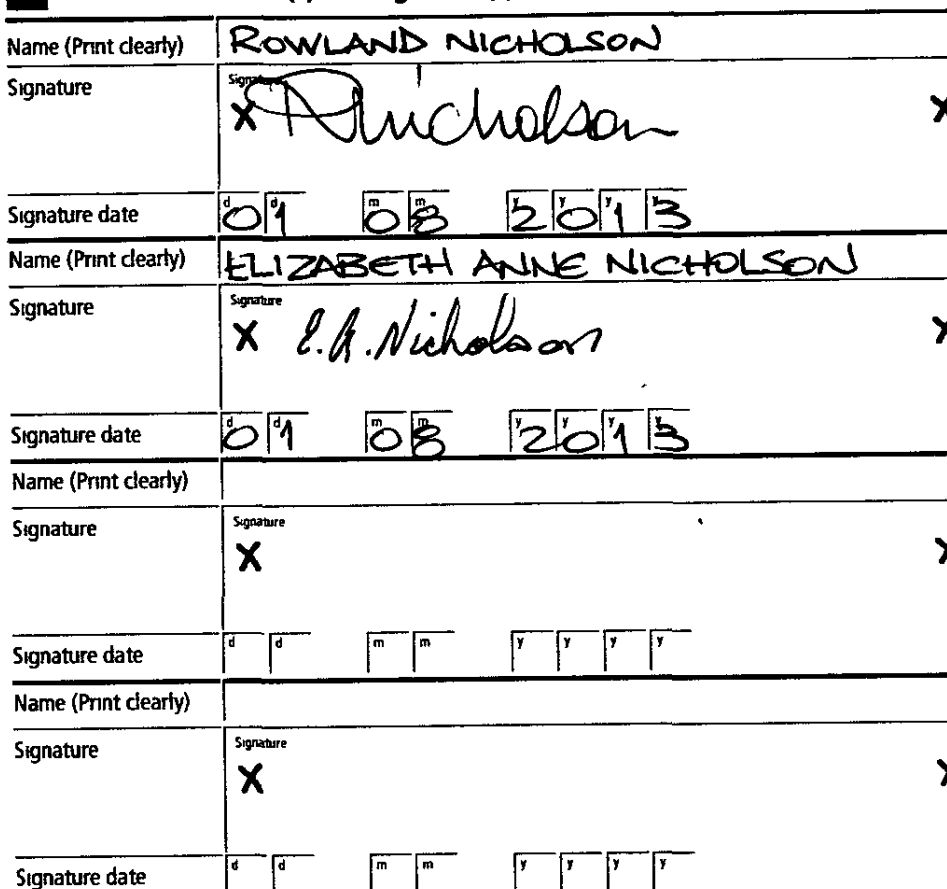 Name (Print clearly) ROWLAND NICHOLSON
Signature Signature
X RNicholson X
Signature date d d m m y y y y 01 08 2013
Name (Print clearly) ELIZABETH ANNE NICHOLSON
Signature Signature
X E.A.Nicholson X
Signature date d d m m y y y y 01 08 2013
Name (Print clearly)
Signature Signature
X X
Signature date d d m m y y y y
Name (Print clearly)
Signature Signature
X X
Signature date d d m m y y y y